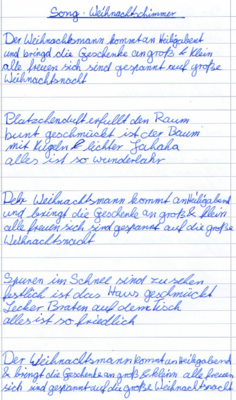 Song: Weihnachtschimmer
Der Weihnachtsmann kommt an Heilgabent
und bringd die Geschenke an groß & Klein
alle freuen sich sind gespannt auf große
Weihnachtsnacht
Platzchenduft erfullt den Raum
bunt geschmückt ist der Baum
mit Kugeln & lichter Jahaha
alles ist so wunderbahr
Der Weihnachtsmann kommt an Heiligabend
und bringt die Geschenke an groß & klein
alle freuen sich sind gespannt auf die große
Weihnachtsnacht
Spuren im Schnee sind zu sehen
festlich ist das Haus geschmückt
Lecker Braten auf dem Tisch
alles ist so friedlich
Der Weihnachtsmann kommt an Heiligabend
& bringt die Geschenke an groß & klein alle freuen
sich sind gespannt auf die große Weihnachtsnacht